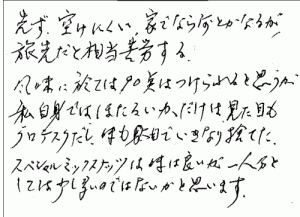 先ず、空けにくい、家でならなんとかなるが
旅先だと相当苦労する。
風味に於ては90点はつけられると思うが
私自身ではほたるいか、だけは見た目も
グロテスクだし、味も駄目でいきなり捨てた。
スペシャルミックスナッツは味は良いが一人分と
しては少し多いのではないかと思います。